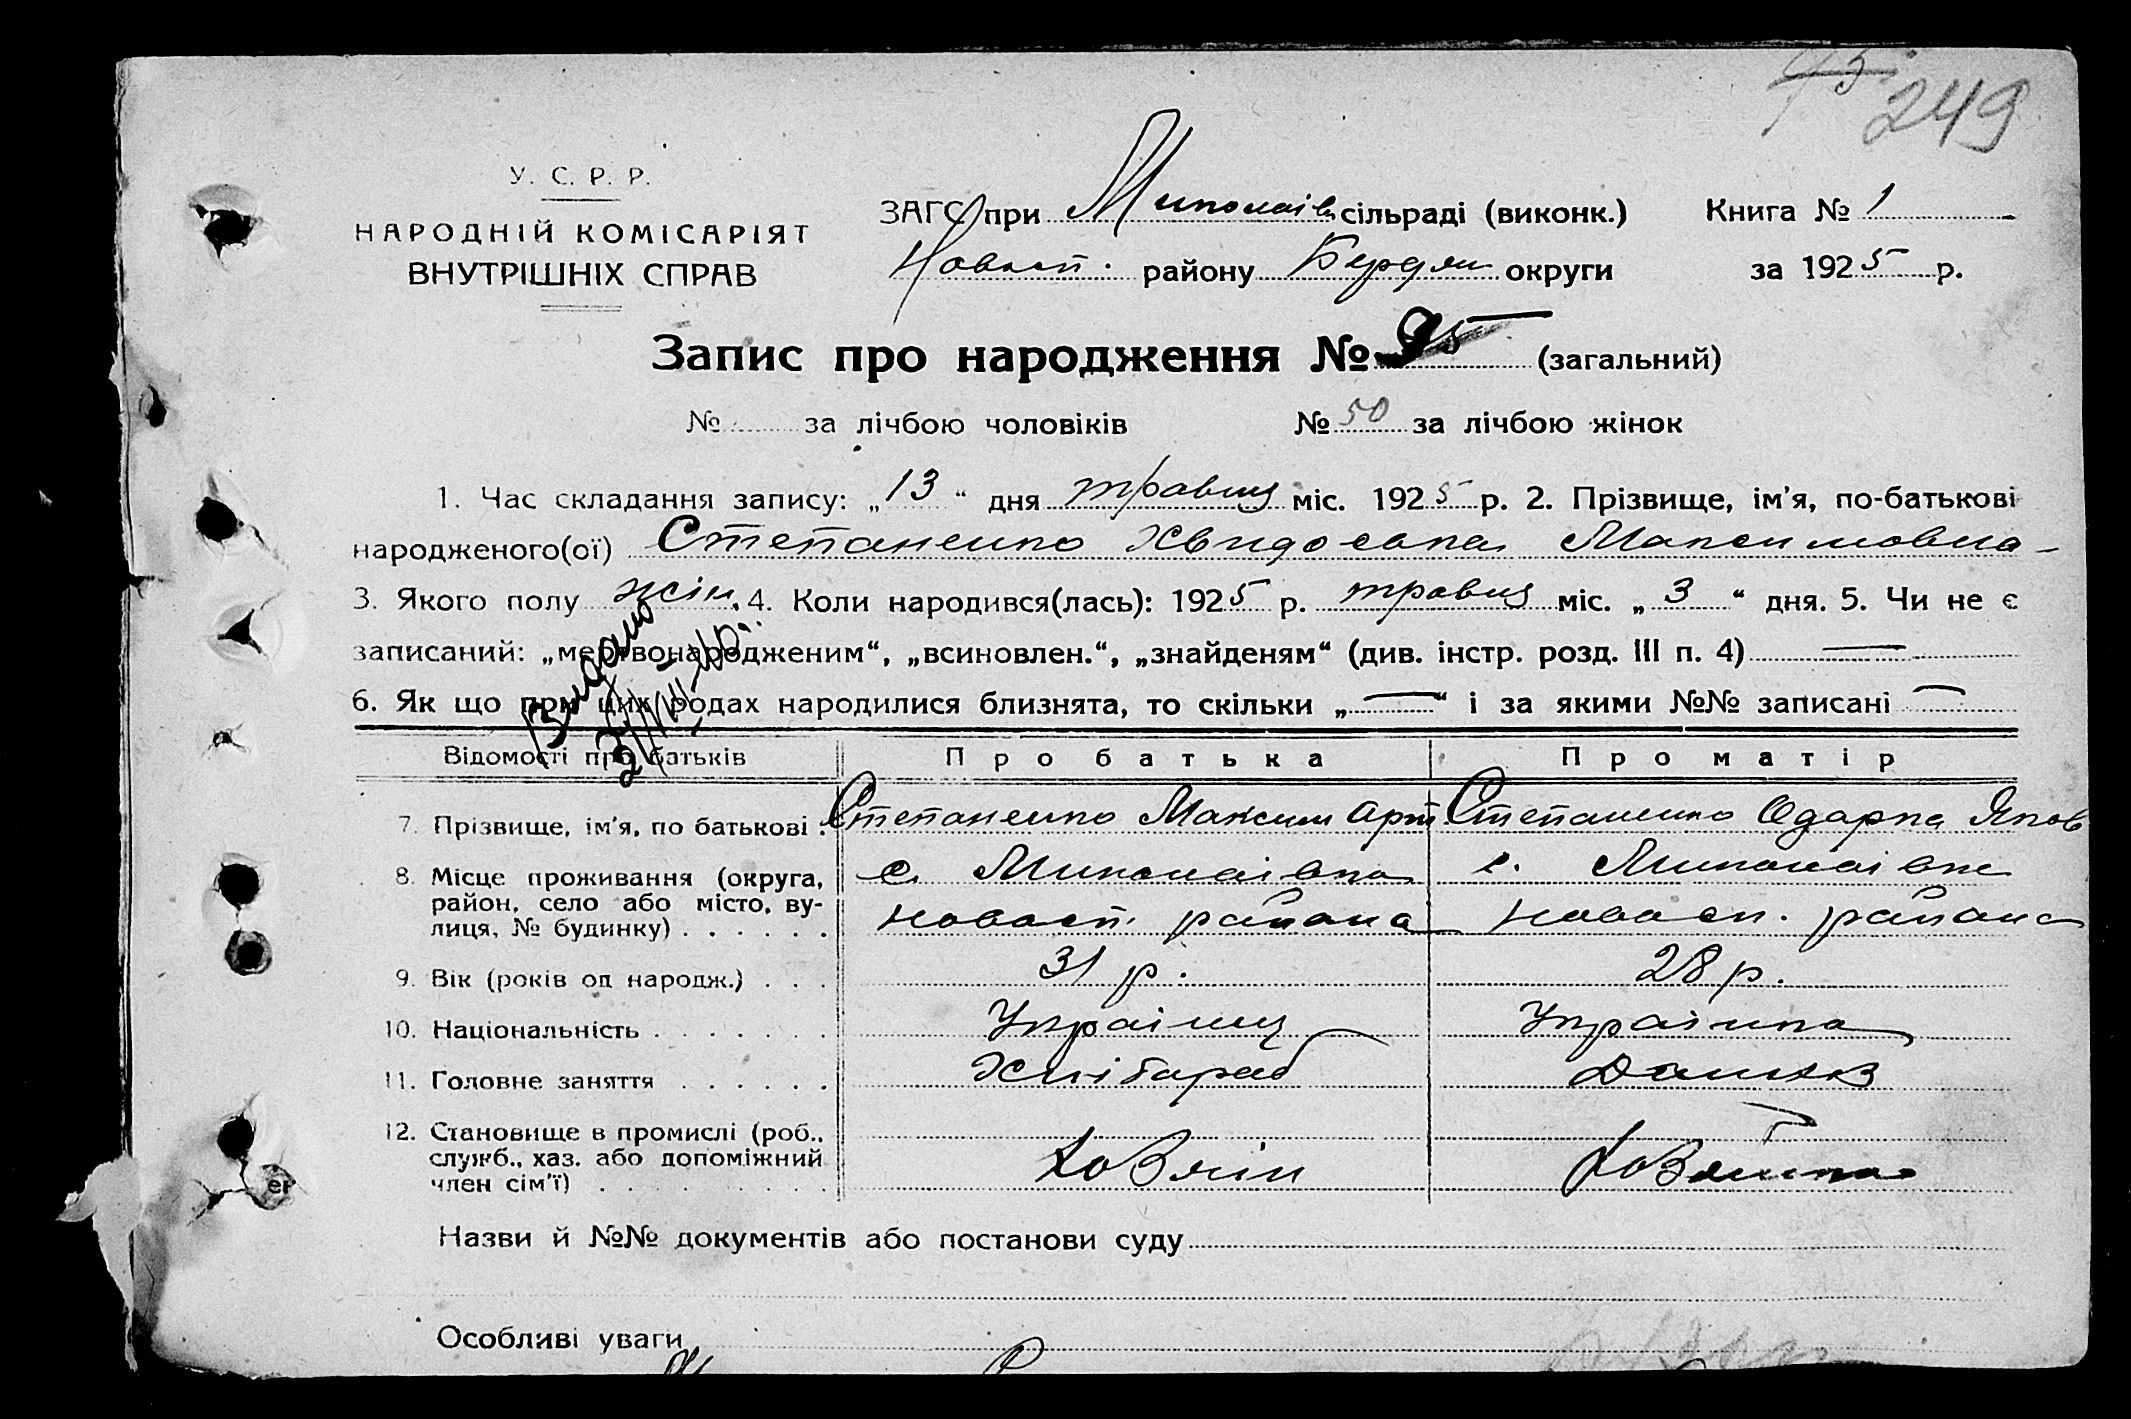 249
У. С. Р. Р.
НАРОДНІЙ КОМІСАРІЯТ
ВНУТРІШНІХ СПРАВ
ЗАГС при Миколаїв. сільраді (виконк.) Книга № 1
Новосп. району Бердян округи за 1925 р.
Запис про народження № 95 (загальний)
№ за лічбою чоловіків № 50 за лічбою жінок
1. Час складання запису: „13“ дня травця міс. 1925 р. 2. Прізвище, ім'я, по-батькові
народженого(ої) Степаненко Хвидоська Максимовна
3. Якого полу жін. 4. Коли народився(лась): 1925 р. травця міс. „3“ дня. 5. Чи не є
записаний: „мертвонародженим“, „всиновлен.“, „знайденям“ (див. інстр. розд. III п. 4) —
6. Як що при цих родах народилися близнята, то скільки „—“ і за якими №№ записані —
Видано
Відомості про батьків Про батька Про матір
7. Прізвище, ім'я, по батькові : Степаненко Максим Арт. Степаненко Одарка Яков
8. Місце проживання (округа, с. Миколаівка с. Миколаівке
район, село або місто, ву- новосп. района новосп. района
лиця, № будинку) . . . . . .
9. Вік (років од народж.) . . . 31 р. 28 р.
10. Національність . . . . . . . Украінц Украінка
11. Головне заняття . . . . . . Хлібороб Домхоз
12. Становище в промислі (роб.,
служб., хаз. або допоміжний
член сім'ї) . . . . . . . .
Назви й №№ документів або постанови суду
Особливі уваги